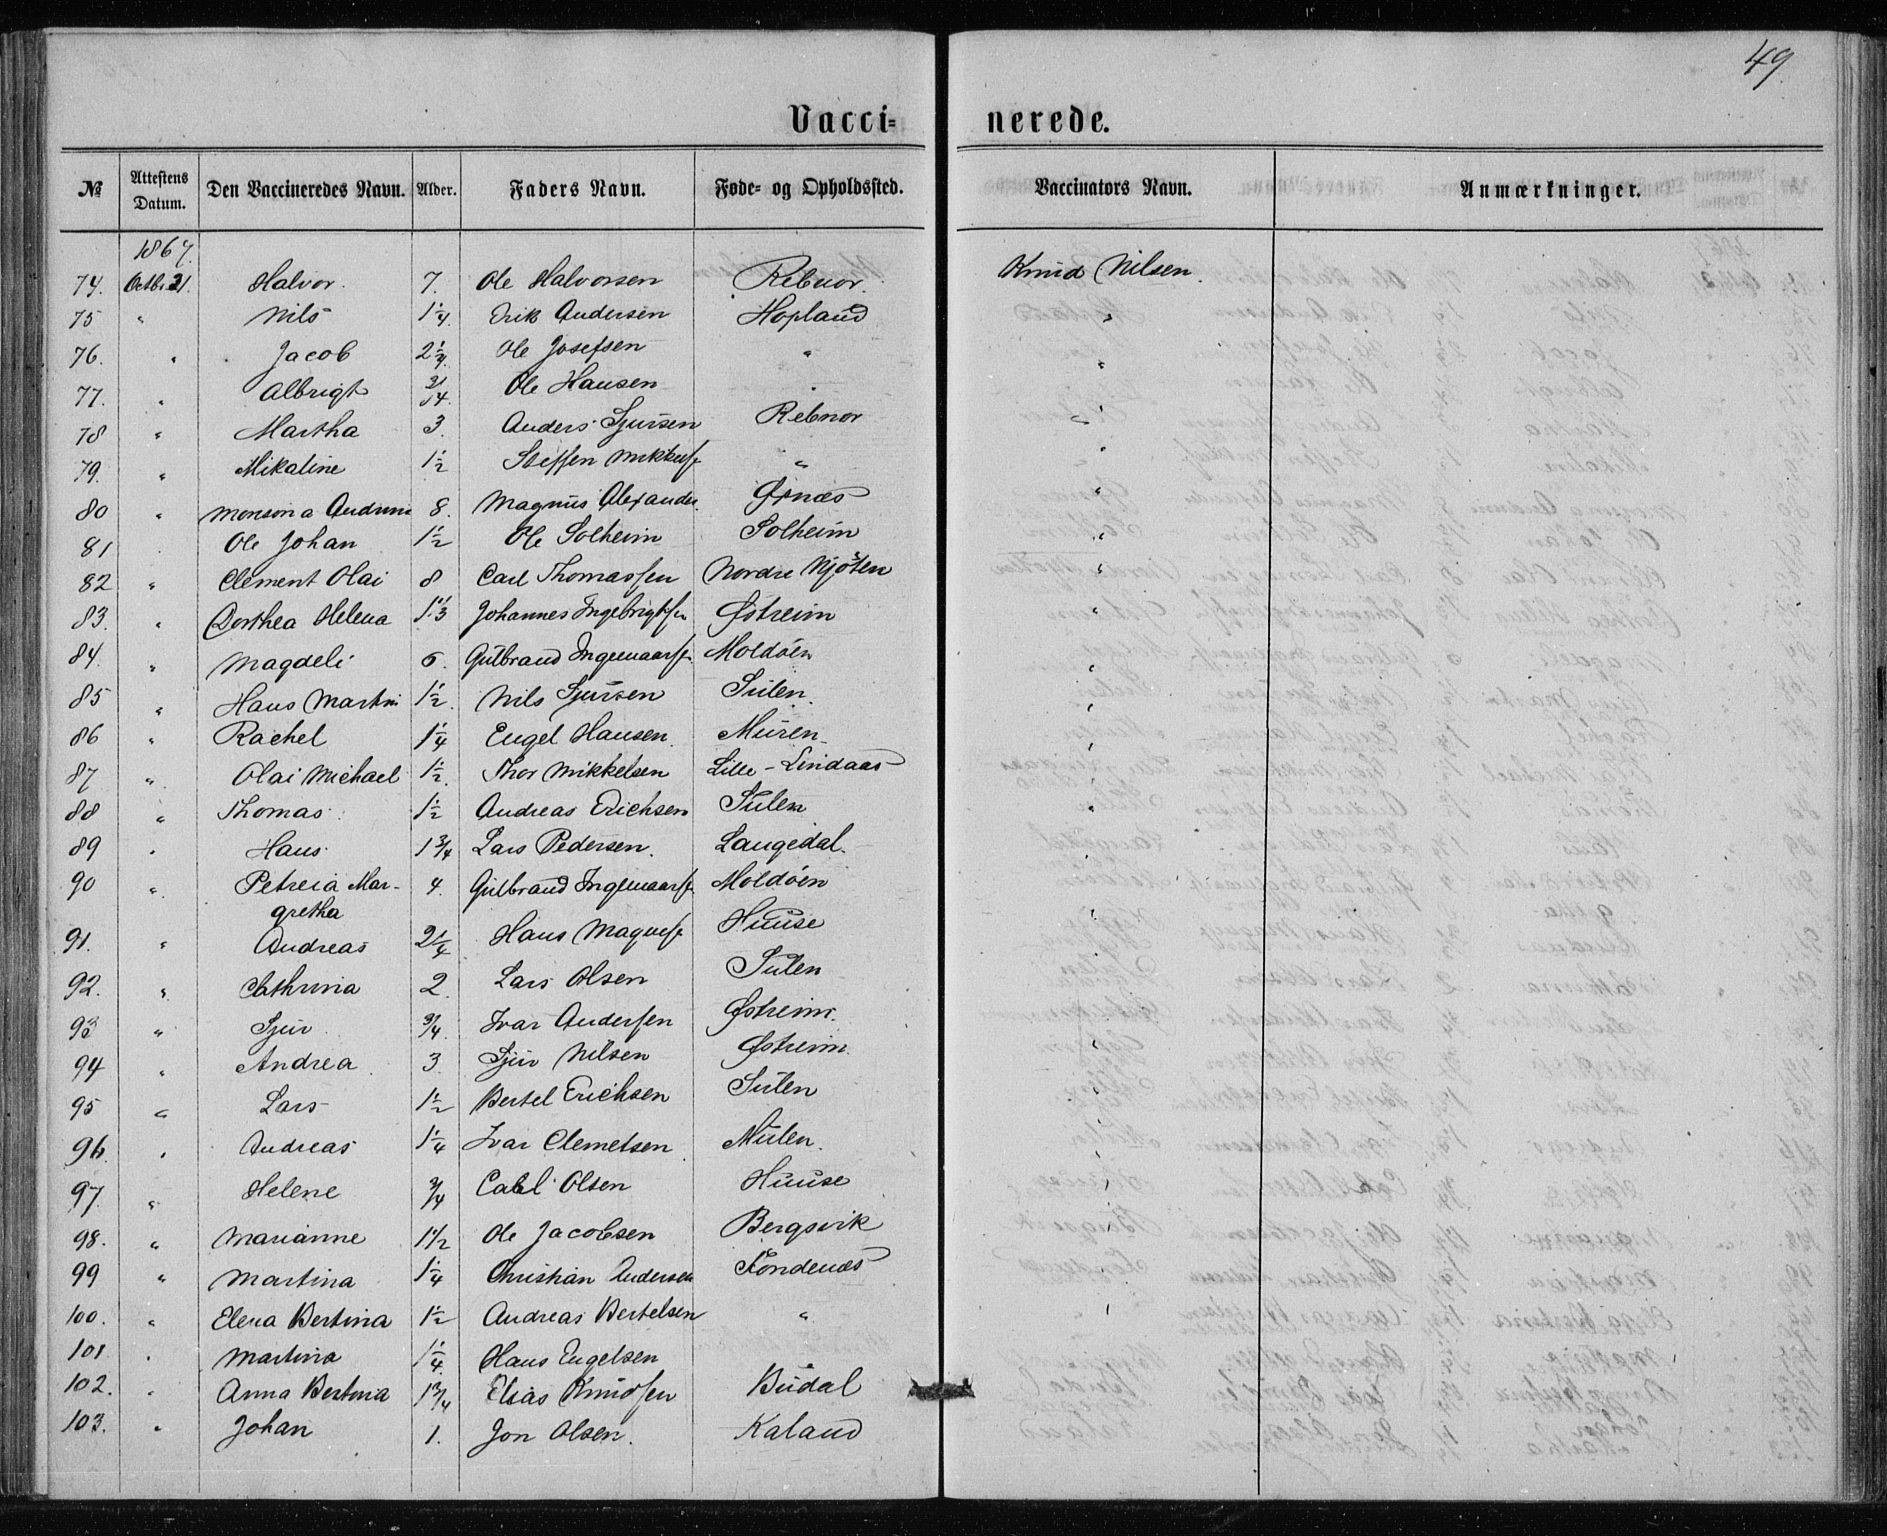 49
Vacci- nerede.
№ Attestens Datum. Den Vaccineredes Navn. Alder. Faders Navn. Føde- og Opholdssted. Vaccinators Navn. Anmærkninger.
1867.
74. Octb. 21. Halvor. 7. Ole Halvorsen Rebnor. Knud Nilsen.
75 " Nils 1 1/4. Erik Andersen Hopland "
76. " Jacob 2 1/4. Ole Josefsen " "
77. " Albrigt 3/4. Ole Hansen " "
78 " Martha 3. Anders Sjursen Rebnor "
79. " Mikaline 1 1/2 Steffen Mikkels. " "
80 " Monsona 8. Magnus Alexander. Ørnæs "
81 Ole Johan 1 1/2 Ole Solheim Solheim "
82 " Clement Olai 8 Carl Thomassen Nordre Njöten "
83. " Dorthea Helena 1 1/3 Johannes Ingebrigtsen Østreim "
84. " Magdeli 6. Gulbrand Ingemaars. Moldöen "
85 " Hans Martin 1 1/2. Nils Sjursen Sulen. "
86 " Rachel 1 1/4 Engel Hansen. Muren "
87 " Olai Michael 1 1/2. Thor Mikkelsen Lille-Lindaas "
88 " Thomas 1 1/2 Andreas Erichsen Sulen "
89 " Hans 1 3/4 Lars Pedersen. Langedal. "
90 " Petreia Mar- 4. Gulbrand Ingemaars. Moldöen "
gretha
91. " Andreas 2 1/4 Hans Magnes. Huuse "
92. " Cathrina 2. Lars Olsen Sulen "
93 " Sjur 3/4 Ivar Andersen Østreim. "
94 " Andrea 3. Sjur Nilsen Østreim. "
95 " Lars 1 1/2 Bertel Erichsen Sulen "
96. " Andreas 1 1/4 Ivar Clemetsen Mulen. "
97. " Helene 3/4 Olsen Huuse "
98. " Marianne 1 1/2 Ole Jacobsen Bergsvik "
99 " Martina 1 1/4 Christian Andersen Föndenæs "
100. " Elena Bertina 1 1/2 Andreas Bertelsen " "
101 " Martina 1 1/4. Hans Engelsen
102. " Anna Bertina 1 3/4 Elias Knudsen Budal
103. " Johan 1. Jon Olsen. Kaland